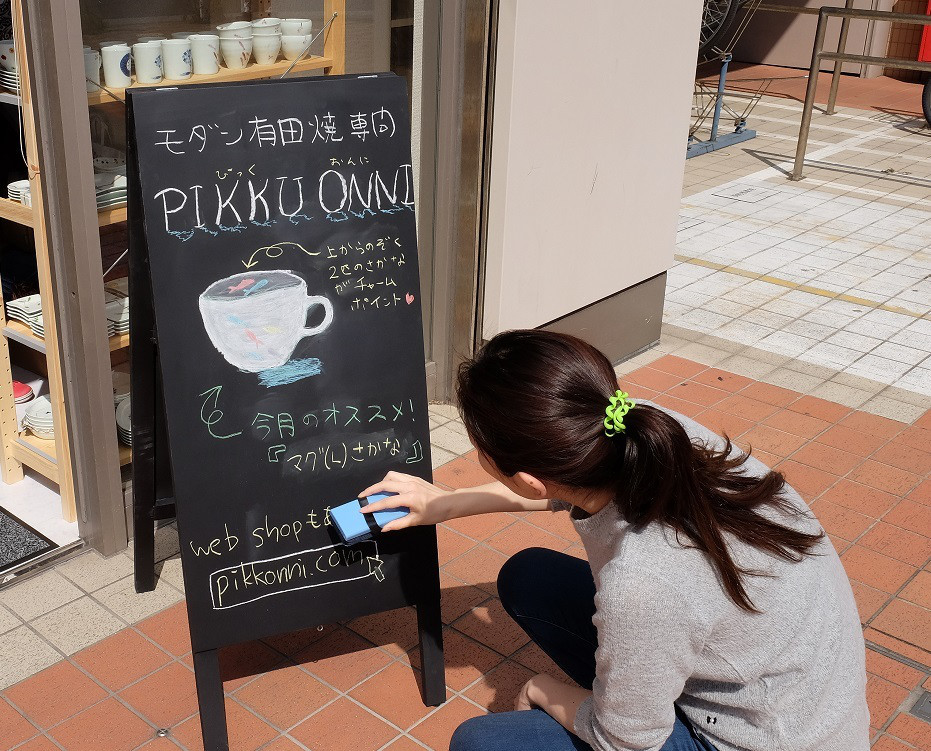 モダン有田焼専門
ぴっく おんに
PIKKU ONNI
上からのぞく
2匹のさかな
がチャーム
ポイント
今月のオススメ!
『マグ(L)さかな』
web shopも
pikkonni.com